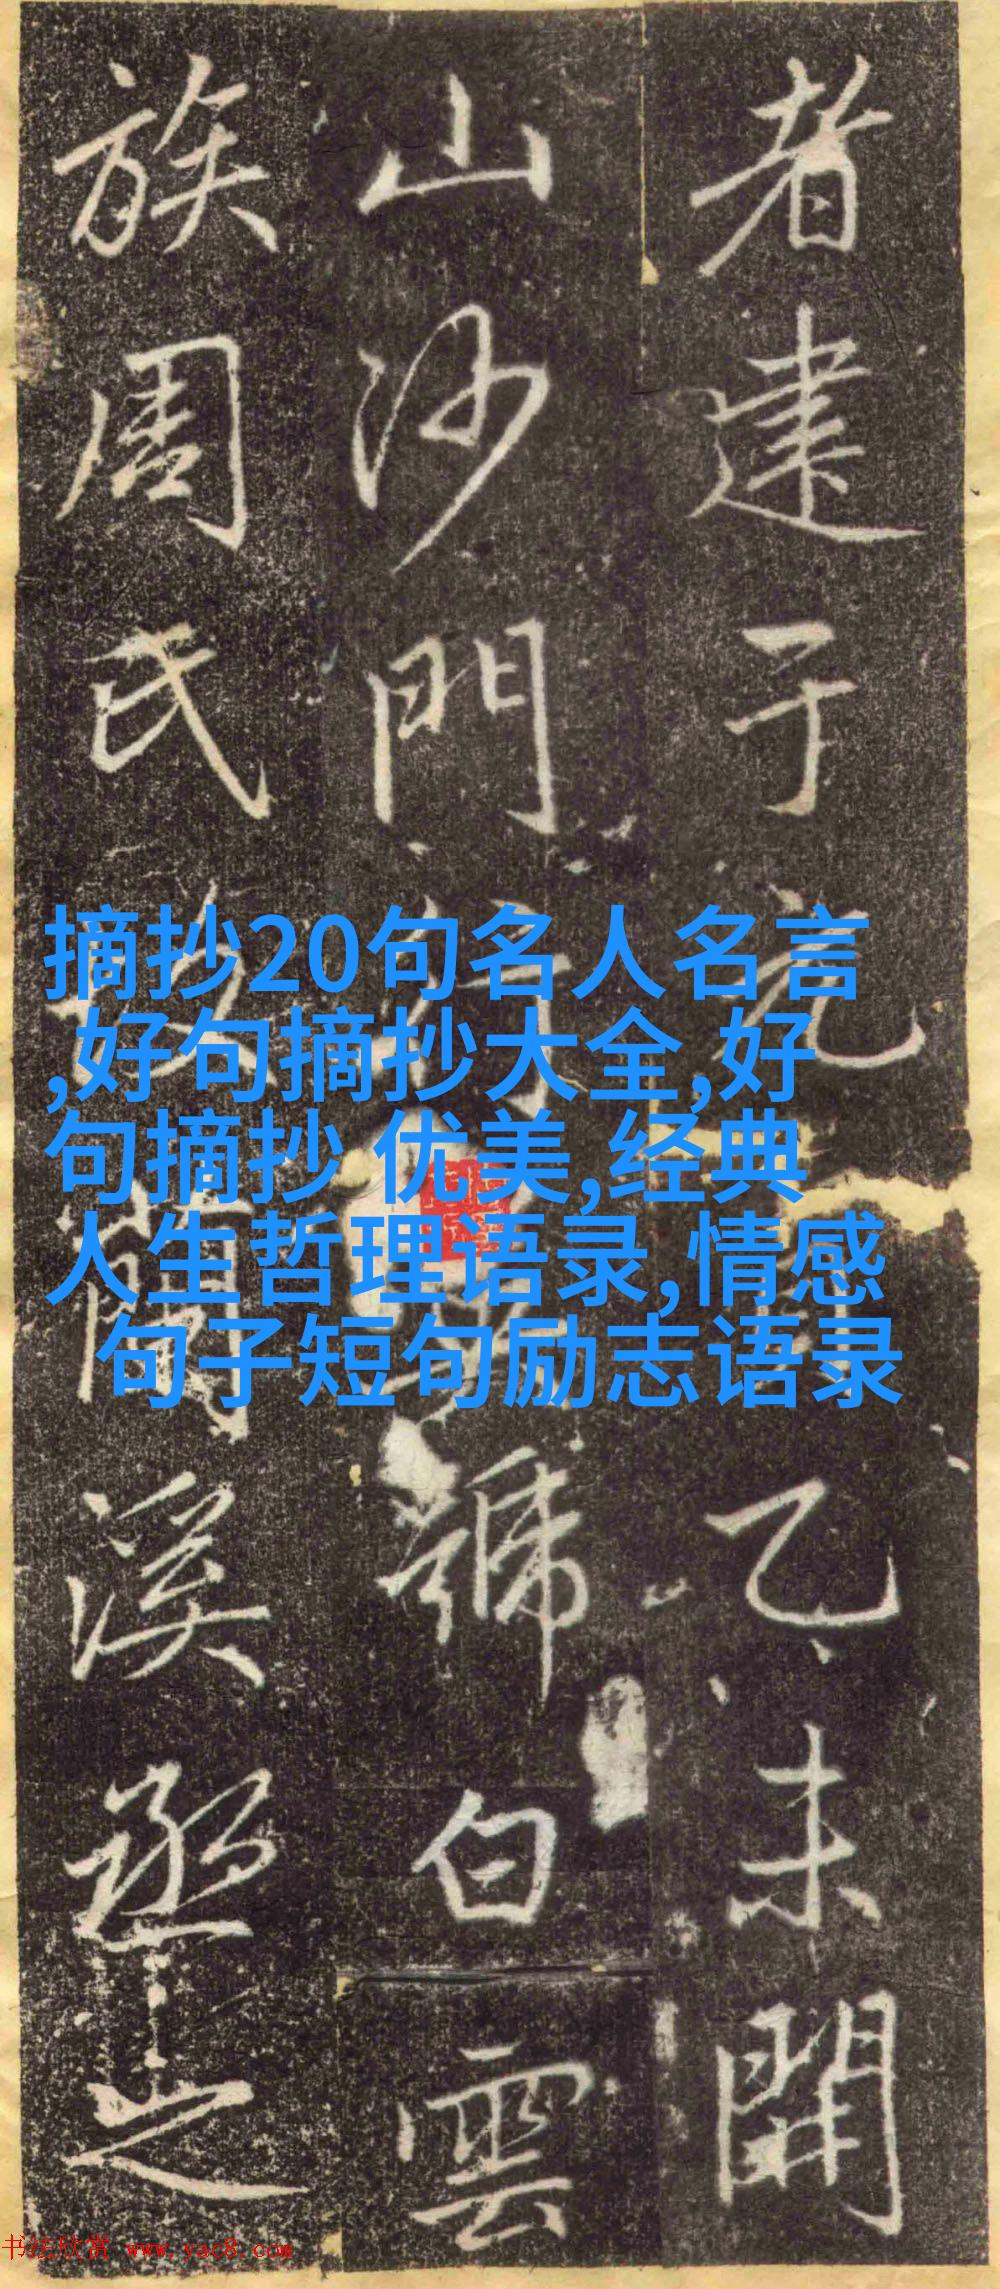 者建于元
乙未開
山沙門
號白雲
族周氏
蘭溪丞之
摘抄20句名人名言
,好句摘抄大全,好
句摘抄 优美,经典
人生哲理语录,情感
句子短句励志语录
书法欣赏 www.yac8.com